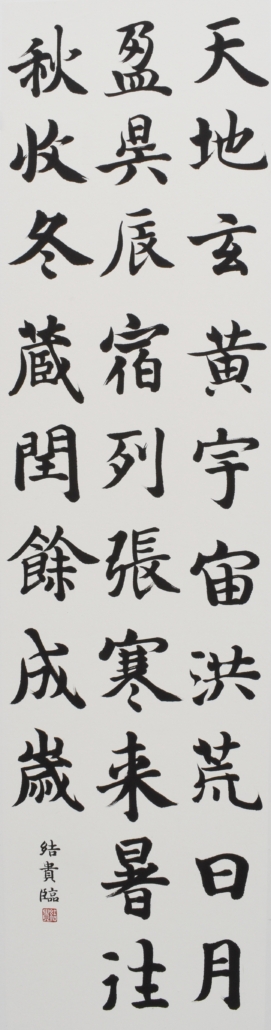 天地玄黄宇宙洪荒日月
盈昃辰宿列張寒来暑往
秋收冬蔵閏餘成歳
結貴臨